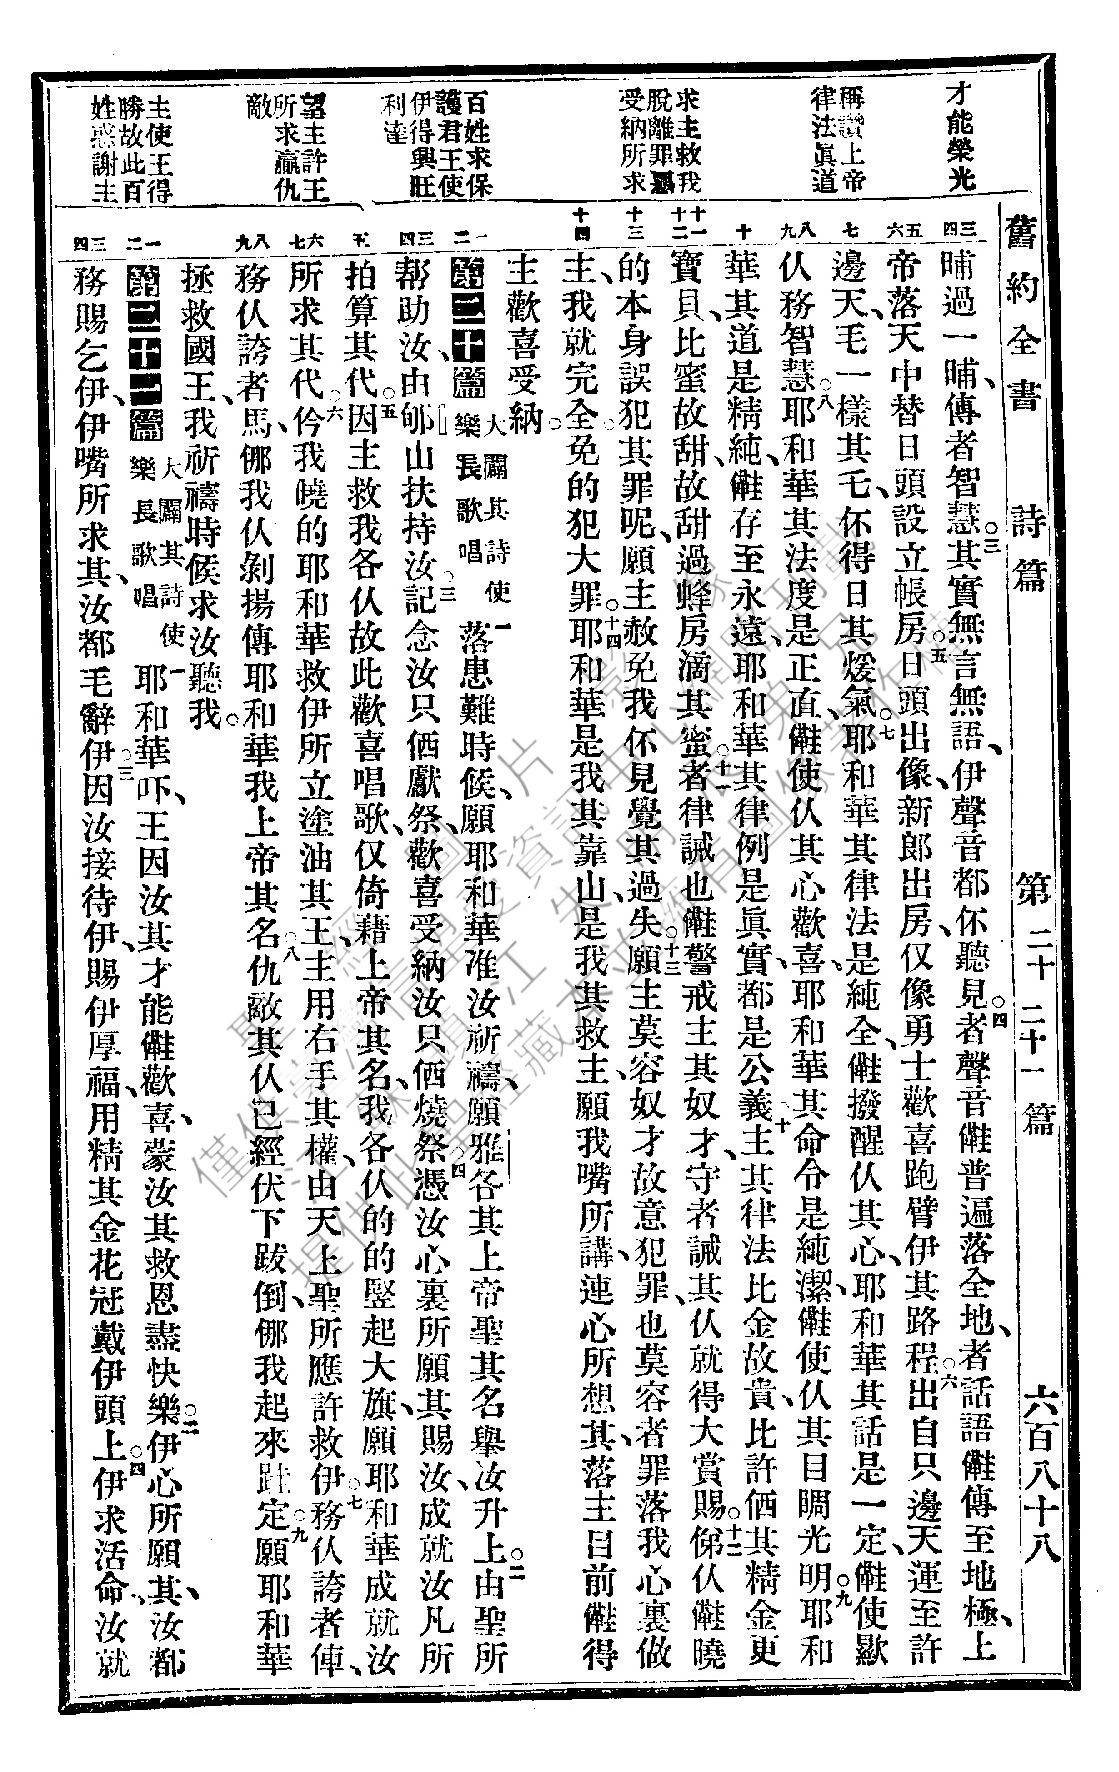 舊約全書 詩篇 第二十 二十一篇 六百八十八
才能榮光
稱讚上帝
律法眞道
求主救我
脫離罪惡
受納所求
百姓求保
護君王使
伊得興旺
利達
望主許王
所求贏仇
敵
主使王得
勝故此百
姓感謝主
三四
晡過一晡、傳者智慧。三其實無言無語、伊聲音都伓聽見。四者聲音㑚普遍落全地、者話語㑚傳至地極、上
五六
帝落天中替日頭設立帳房。五日頭出像新郎出房、仅像勇士歡喜跑臂伊其路程。六出自只邊天、運至許
七
邊天、毛一樣其乇、伓得日其煖氣。七耶和華其律法是純全、㑚撥醒仅其心、耶和華其話是一定、㑚使歇
八九
仅務智慧。八耶和華其法度是正直、㑚使仅其心歡喜、耶和華其命令是純潔、㑚使仅其目睭光明。九耶和
十
華其道是精純、㑚存至永遠、耶和華其律例是眞實、都是公義。十主其律法比金故貴、比許価其精金更
十一十二
寶貝、比蜜故甜、故甜過蜂房滴其蜜。十一者律誡也㑚警戒主其奴才、守者誡其仅就得大賞賜。十二俤仅㑚曉
十三
的本身誤犯其罪呢、願主赦免我伓見覺其過失。十三願主莫容奴才故意犯罪、也莫容者罪落我心裏做
十四
主、我就完全、免的犯大罪。十四耶和華是我其靠山、是我其救主、願我嘴所講、連心所想其、落主目前㑚得
主歡喜受納。
一二
第二十篇 大闢其詩使樂長歌唱 一落患難時候、願耶和華准汝祈禱、願雅各其上帝聖其名舉汝升上。二由聖所
三四
幫助汝、由郇山扶持汝。三記念汝只価獻祭、歡喜受納汝只価燒祭。四憑汝心裏所願其賜汝、成就汝凡所
五
拍算其代。五因主救我各仅、故此歡喜唱歌、仅倚藉上帝其名、我各仅的的豎起大旗、願耶和華成就汝
六七
所求其代。六仱我曉的耶和華救伊所立塗油其王、主用右手其權、由天上聖所應許救伊。七務仅誇者俥、
八九
務仅誇者馬、㑚我仅剝揚傳耶和華我上帝其名。八仇敵其仅已經伏下跋倒、㑚我起來跬定。九願耶和華
拯救國王、我祈禱時候、求汝聽我。
一二
第二十一篇 大闢其詩使樂長歌唱 一耶和華吓、王因汝其才能㑚歡喜、蒙汝其救恩盡快樂。二伊心所願其、汝都
三四
務賜乞伊、伊嘴所求其、汝都毛辭伊。三因汝接待伊、賜伊厚福、用精其金花冠戴伊頭上。四伊求活命、汝就